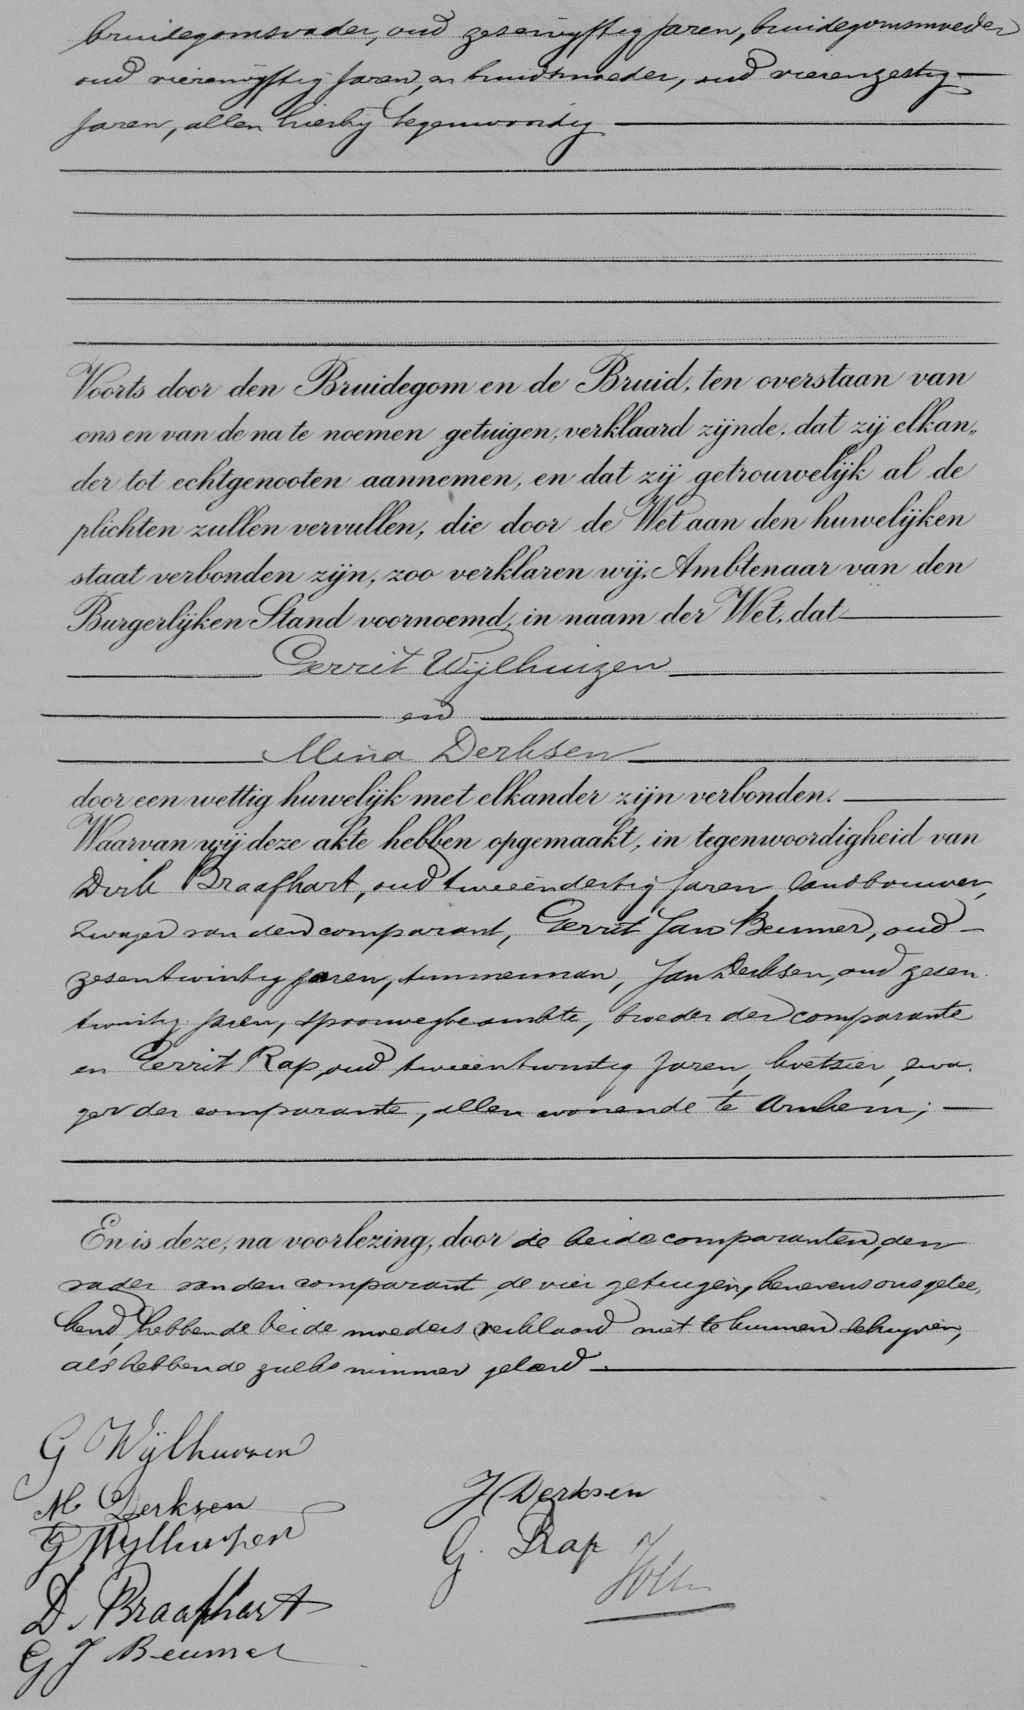 bruidegomsvader, oud zesenvijftig jaren, bruidegomsmoeder
oud vierenvijftig jaren, en bruidsmoeder, oud vierenzestig
jaren, allen hierbij tegenwoordig
Voorts door den Bruidegom en de Bruid, ten overstaan van
ons en van de na te noemen getuigen, verklaard zijnde, dat zij elkan„
der tot echtgenooten aannemen, en dat zij getrouwelijk al de
plichten zullen vervullen, die door de Wet aan den huwelijken
staat verbonden zijn, zoo verklaren wij, Ambtenaar van den
Burgerlijken Stand voornoemd, in naam der Wet, dat
Gerrit Wijlhuizen
en
Mina Derksen
door een wettig huwelijk met elkander zijn verbonden.
Waarvan wij deze akte hebben opgemaakt, in tegenwoordigheid van
Dirk Braafhart, oud tweeëndertig jaren, landbouwer,
zwager van den comparant, Gerrit Jan Beumer, oud
zesentwintig jaren, timmerman, Jan Derksen, oud zesen
twintig jaren, spoorwegbeambte, broeder der comparante
en Gerrit Rap, oud tweeentwintig jaren, koetsier, zwa.
ger der comparante, allen wonende te Arnhem;
En is deze, na voorlezing, door de beide comparanten, den
vader van den comparant, de vier getuigen, benevens ons getee,
kend, hebbende beide moeders verklaard niet te kunnen schrijven,
als hebbende zulks nimmer geleerd
G Wijlhuizen
M Derksen
G Wijlhuizen
D. Braafhart
G J Beumer
J Derksen
G. Rap